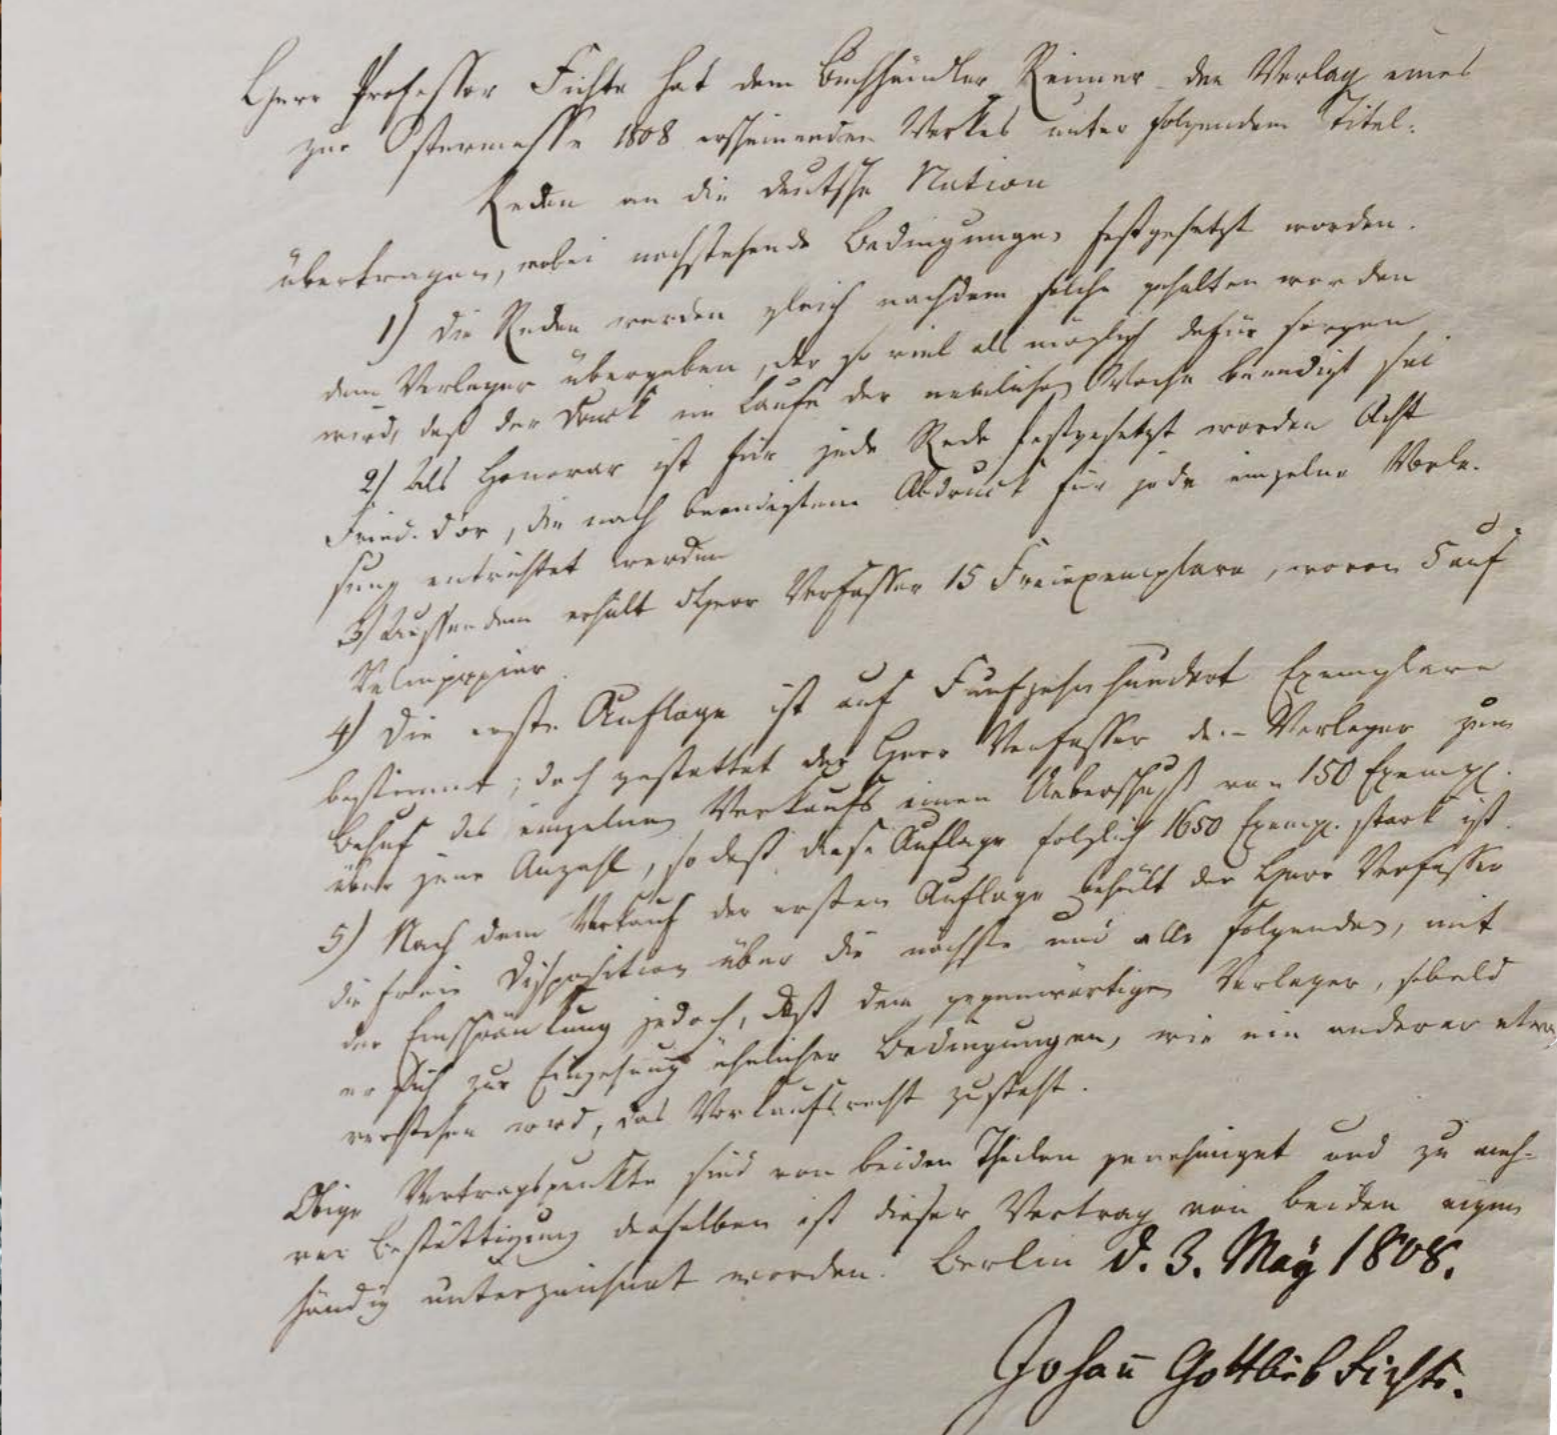 Herr Professor Fichte hat dem Buchhändler Reimer den Verlag eines
zur Ostermesse 1808 erscheinenden Werkes unter folgendem Titel:
Reden an die deutsche Nation
übertragen, wobei nachstehende Bedingungen festgesetzt worden.
1) Die Reden werden gleich nachdem solche gehalten worden
dem Verleger übergeben, der so viel als möglich dafür sorgen
wird, daß der Druck im Laufe der nemlichen Woche beendigt sei
2) Als Honorar ist für jede Rede festgesetzt worden Acht
Fried. dor, die nach beendigtem Abdruck für jede einzelne Vorle-
sung entrichtet werden
3) Ausserdem erhält Herr Verfasser 15 Freiexemplare, wovon 5 auf
Velinpapier.
4) Die erste Auflage ist auf Funfzehnhundert Exemplare
bestimmt; doch gestattet der Herr Verfasser dem Verleger zum
Behuf des einzelnen Verkaufs einen Ueberschuß von 150 Exempl.
über jene Anzahl, so daß diese Auflage folglich 1650 Exempl. stark ist.
5) Nach dem Verkauf der ersten Auflage behält der Herr Verfasser
die freie Disposition über die nächste und alle folgenden, mit
der Einschränkung jedoch, daß dem gegenwärtigen Verleger, sobald
er sich zur Eingehung ähnlicher Bedingungen, wie ein anderer etwa
verstehen wird, das Vorkaufsrecht zusteht.
Obige Vertragspunkte sind von beiden Theilen genehmiget und zu meh-
rer Bestättigung derselben ist dieser Vertrag von beiden eigen
händig unterzeichnet worden. Berlin d. 3. May 1808.
Johan̄ Gottlieb Fichte.